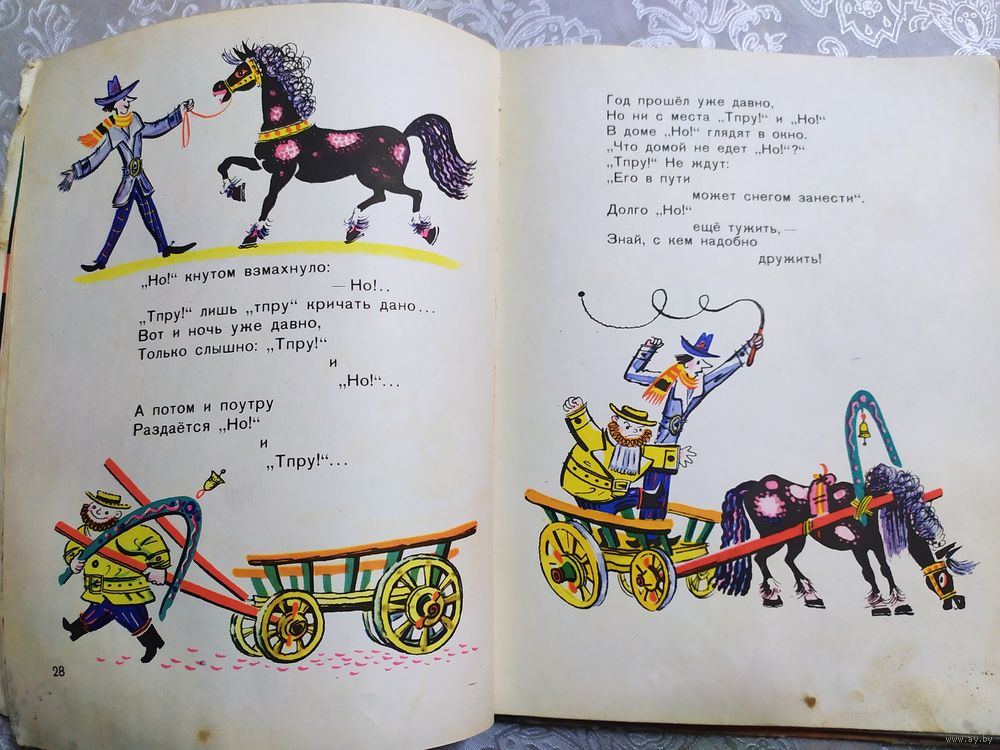 „Но!“ кнутом взмахнуло:
— Но!..
„Тпру!“ лишь „тпру“ кричать дано...
Вот и ночь уже давно,
Только слышно: „Тпру!“
и
„Но!“...
А потом и поутру
Раздаётся „Но!“
и
„Тпру!“...
28
Год прошёл уже давно,
Но ни с места „Тпру!“ и „Но!“
В доме „Но!“ глядят в окно.
„Что домой не едет „Но!“?“
„Тпру!“ Не ждут:
„Его в пути
может снегом занести“.
Долго „Но!“
ещё тужить,—
Знай, с кем надобно
дружить!
www.ay.by